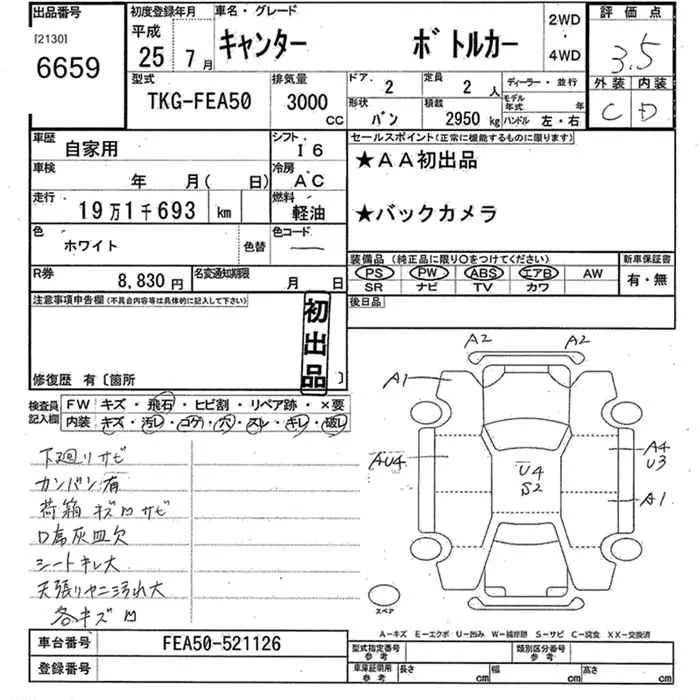 出品番号 初度登録年月 車名・グレード 2WD 評価点
[2130] 平成 キャンター ボトルカー 3.5
6659 25年7月 4WD
型式 排気量 ドア. 2 定員 2人 ディーラー・並行 外装 内装
TKG-FEA50 3000cc 形状 バン 積載 2950kg モデル年式 年 C D
ハンドル 左・右
車歴 自家用 シフト I6 セールスポイント(正常に機能するものに限ります)
車検 年 月( 日) 冷房 AC ★AA初出品
走行 19万1千693 km 燃料 軽油 ★バックカメラ
色 ホワイト 色替 色コード ―
装備品(純正品に限り○をつけてください) 新車保証書
R券 8,830円 名変通知期限 月 日 PS PW ABS エアB AW 有・無
SR ナビ TV カワ
注意事項申告欄(不具合内容等は具体的に記入して下さい) 後日品
初出品
修復歴 有〔箇所 〕
検査員記入欄 FW キズ・飛石・ヒビ割・リペア跡・×要
内装 キズ・汚レ・コゲ・穴・スレ・キレ・破レ
下廻りサビ
カンバン有
荷箱キズ凹サビ
口席灰皿欠
シートキレ大
天張りヤニ汚れ大
各キズ凹
A2 A2
A1
AU4 U4 A4
S2 U3
A1
スペア
A-キズ E-エクボ U-凹み W-補修跡 S-サビ C-腐食 XX-交換済
車台番号 FEA50-521126 型式指定番号 参考 類別区分番号 参考
登録番号 車庫証明用 参考 長さ cm 幅 cm 高さ cm